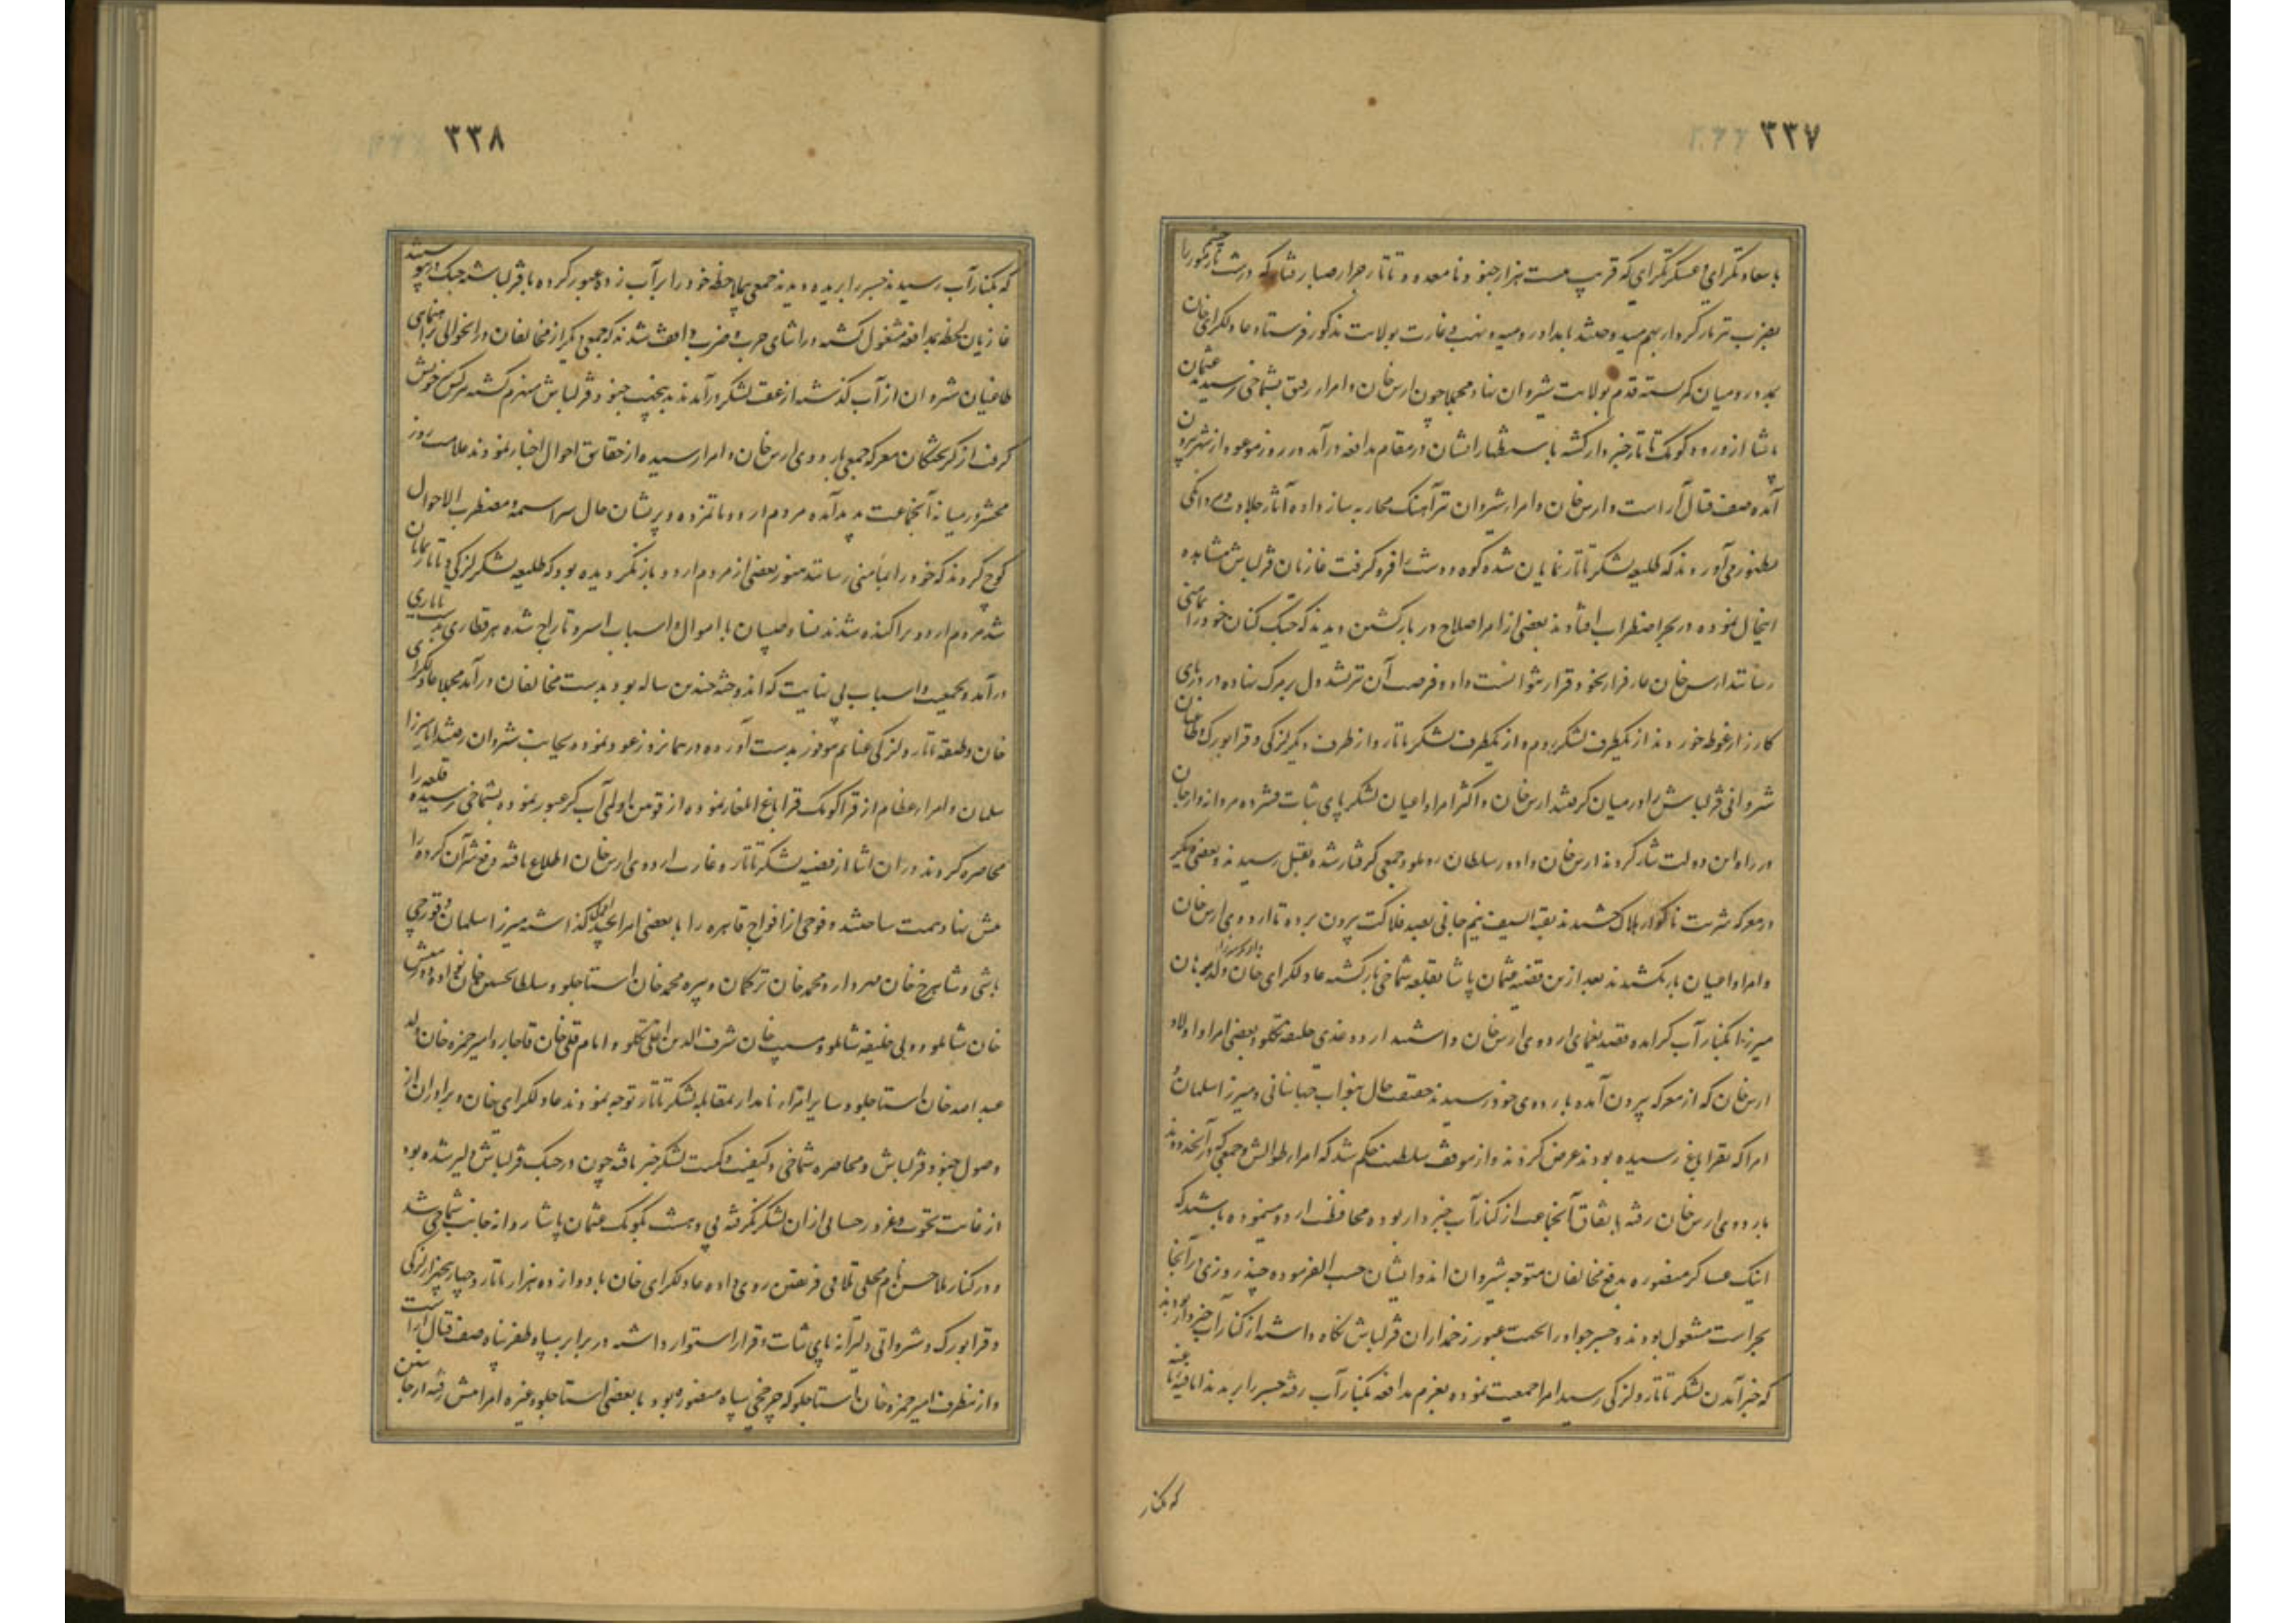 ۳۳۷
با سعادتکرای و عسکرتکرای که قریب بیست هزار جنود نامعدود تاتار جرار صبا رفتار که در دشت
بضرب تیر تار کردار بهم میدوختند بامداد رومیه و نهب و غارت بولایت مذکور فرستاد و عادلکرای خان
بمدد رومیان کمر بسته قدم بولایت شیروان نهاد مجملا چون ارس خان و امرا رفق بشماخی رسید عثمان
پاشا از ورود کومک تاتار خبردار کشته باستظهار ایشان در مقام مدافعه درآمد در روز موعود از شهر بیرون
آمده صف قتال آراست و ارس خان و امراء شیروان نیز آهنک محاربه ساز داده آثار جلادت و مردانکی
بظهور می‌آوردند که طلیعه لشکر تاتار نمایان شده کوه و دشت فرو کرفت غازیان قزلباش مشاهده
اینحال نموده در بحر اضطراب افتادند بعضی از امرا صلاح در بازکشتن دیدند که جنک کنان خود را بمامنی
رسانند ارس خان عار فرار بخود قرار نتوانست داد و فرصت آن نیز نشد دل بر مرک نهاده در دریای
کارزار غوطه خوردند از یکطرف لشکر روم و از یکطرف لشکر تاتار و از طرف دیکر لزکی و قرابورک و طاغیان
شروانی قزلباش را در میان کرفتند ارس خان و اکثر امرا و اعیان لشکر پای ثبات فشرده مردانه وار جان
در راه این دولت نثار کردند ارس خان و داود سلطان روملو و جمعی کرفتار شده بقتل رسیدند و بعضی دیکر
در معرکه شربت ناکوار هلاک چشیدند بقیة السیف نیم جانی بصد فلاکت بیرون برده تا اردوی ارس خان
و امرا و اعیان باز نکشیدند بعد ازین قضیه عثمان پاشا بقلعه شماخی بازکشته عادلکرای خان و لد برهان
میرزا بکنار آب کر آمده قصد یغمای اردوی ارس خان داشتند اردوغدی خلیفه تکلو و بعضی امرا و اولاد
ارس خان که از معرکه بیرون آمده باردوی خود رسیدند حقیقت حال بنواب جهانبانی و میرزا سلمان و
امرا که بقراباغ رسیده بودند عرض کردند و از موقف سلطنت حکم شد که امراء طوالش و جمعی که در آنحدودند
باردوی ارس خان رفته باتفاق آنجماعت از کنار آب خبردار بوده محافظت اردو مینموده باشند که
اینک عساکر منصوره بدفع مخالفان متوجه شیروان‌اند و ایشان حسب الفرموده چند روزی در آنجا
بحراست مشغول بودند و جسر جواد را بجهت عبور زخمداران قزلباش نکاه داشته از کنار آب خبردار بودند
که خبر آمدن لشکر تاتار و لزکی رسید امرا جمعیت نموده بعزم مدافعه بکنار آب رفته جسر را بریدند
که بکنار
۳۳۸
که بکنار آب رسیدند جسر را بریده دیدند جمعی بیملاحظه خود را بر آب زده عبور کرده با قزلباش بجنک در پیوستند
غازیان لحظه بمدافعه مشغول کشته در اثنای حرب و ضرب واقف شدند که جمعی دیکر از مخالفان در انحوالی براهنمایی
طاغیان شروان از آب کذشته از عقب لشکر درآمدند بدینجهت جنود قزلباش منهزم کشته هر کس سر خویش
کرفت از کریختکان معرکه جمعی باردوی ارس خان و امرا رسیده از حقایق احوال اخبار نمودند علامت روز
محشر در میانه آنجماعت پدید آمده مردم اردو ماتمزده و پریشان حال سراسیمه و مضطرب الاحوال
کوچ کردند که خود را بمامنی رسانند هنوز بعضی از مردم اردو باز نکردیده بود که طلیعه لشکر لزکی و تاتار نمایان
شد مردم اردو پراکنده شدند نسا و صبیان با اموال و اسباب اسر و تاراج شده هر قطاری بدست تاتاری
درآمد و جمعیت و اسباب بی نهایت که اندوخته چندین ساله بود بدست مخالفان درآمد مجملا عادلکرای
خان و طبقه تاتار و لزکی غنایم موفور بدست آورده در همانروز عود نموده بجانب شروان رفتند اما میرزا
سلمان و امراء عظام از قراکوبک قراباغ ایلغار نموده از قویون اولمی آب کر عبور نموده بشماخی رسیده قلعه را
محاصره کردند در ان اثنا از قضیه لشکر تاتار و غارت اردوی ارس خان اطلاع یافته دفع شر آن کروه را
پیش نهاد همت ساختند و فوجی از افواج قاهره را با بعضی امرا بجهة قلعه کذاشته میرزا سلمان و قورچی
باشی و شاهرخ خان مهردار و محمد خان ترکمان و پیره محمد خان استاجلو و سلطانحسین خان
خان شاملو و ولی خلیفه شاملو و مسیب خان شرف الدین اغلی تکلو و امام قلی خان قاجار و امیر حمزه خان ولد
عبدالله خان استاجلو و سایر امراء نامدار بمقابله لشکر تاتار توجه نمودند عادلکرای خان و برادران از
وصول جنود قزلباش و محاصره شماخی و کیفیت و کمیت لشکر خبر یافته چون در جنک قزلباش دلیر شده بود
از غایت نخوت و غرور حسابی از ان لشکر نکرفته بی دهشت بکومک عثمان پاشا روانه جانب شماخی شد
و در کنار ملاحسن نام محلی تلاقی فریقین روی داده عادلکرای خان با دوازده هزار تاتار و چهار پنجهزار لزکی
و قرابورک و شروانی دلیرانه پای ثبات و قرار استوار داشته در برابر سپاه ظفر پناه صف قتال آراست
و از ینطرف امیر حمزه خان استاجلو که چرخچی سپاه منصور بود با بعضی استاجلو و غیره امرا پیش رفته از جان